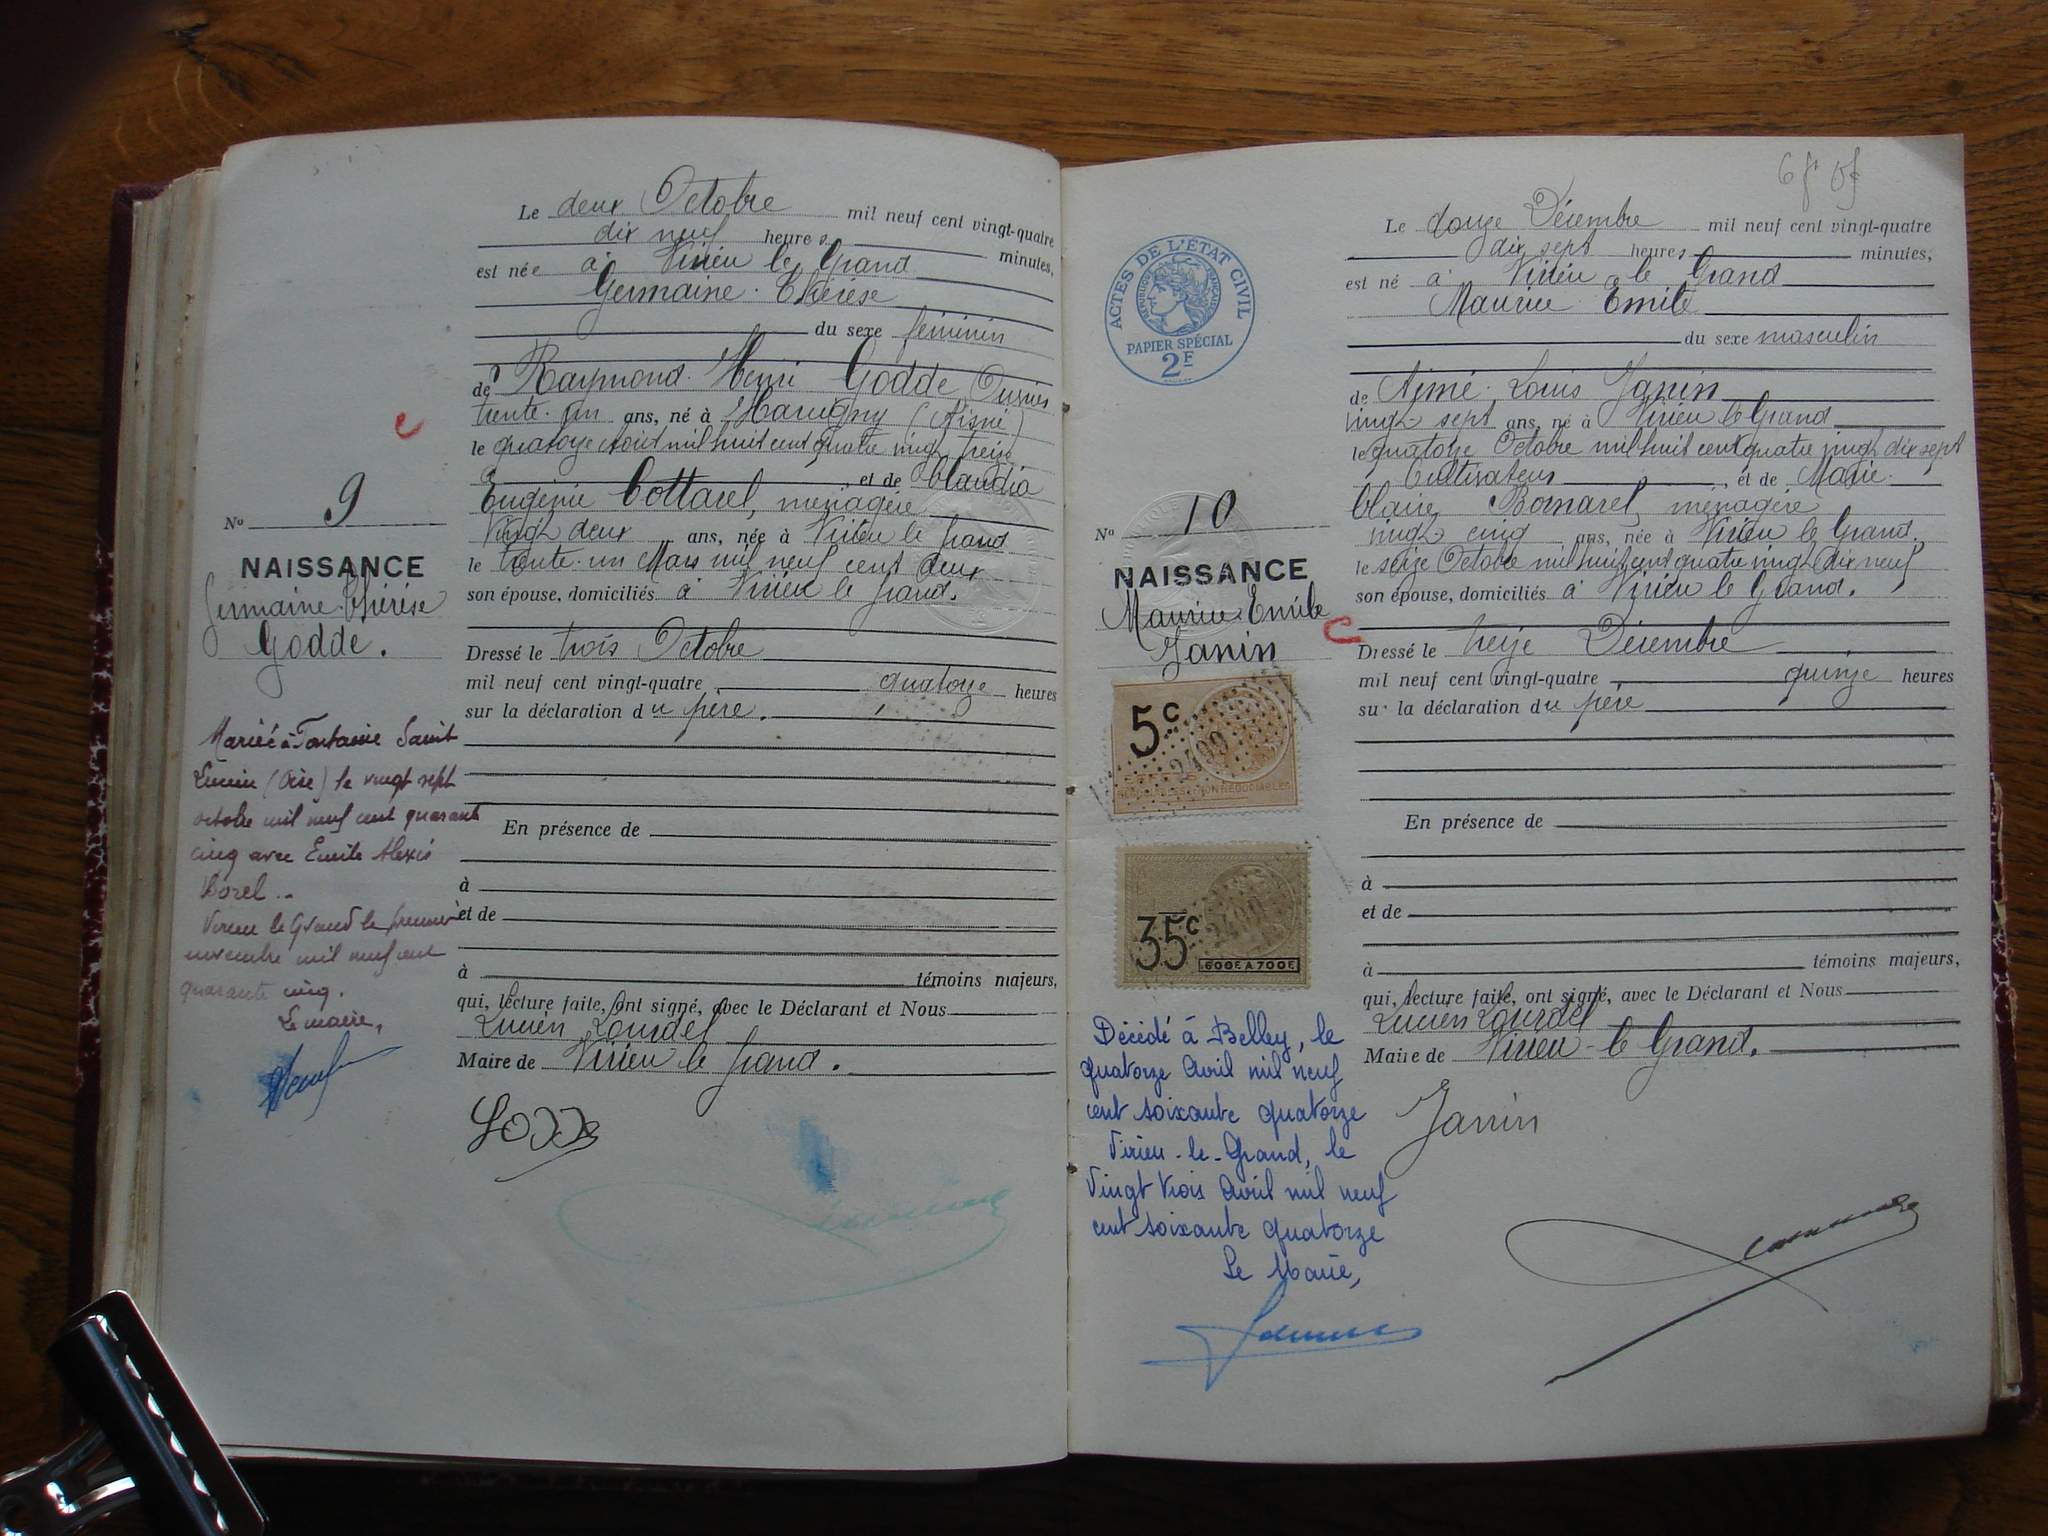 Le deux Octobre mil neuf cent vingt-quatre
dix neuf heures minutes,
est née à Virieu le Grand
Germaine Thérèse
du sexe féminin
de Raymond Henri Godde, Ouvrier
trente un ans, né à (Aisne)
le quatorze Aout mil huit cent quatre vingt treize
et de Claudia
Eugénie Cottarel, ménagère
Vingt deux ans, née à Virieu le Grand
le trente un Mars mil neuf cent deux
son épouse, domiciliés à Virieu le Grand.
Dressé le trois Octobre
mil neuf cent vingt-quatre quatorze heures
sur la déclaration du père.
En présence de
à
et de
à témoins majeurs,
qui, lecture faite, ont signé, avec le Déclarant et Nous
Lucien Lourdel
Maire de Virieu le Grand.
Godde
No 9
NAISSANCE
Germaine Thérèse
Godde.
Mariée à Fontaine Saint
Lucien (Oise) le vingt sept
octobre mil neuf cent quarante
cinq avec Emile Alexis
Borel
Virieu le Grand le premier
novembre mil neuf cent
quarante cinq.
Le maire,
ACTES DE L'ÉTAT CIVIL
RÉPUBLIQUE FRANÇAISE
PAPIER SPÉCIAL
2F
No 10
NAISSANCE
Maurice Emile
Janin
5c
2499
35c
2499
600F A 700F
Décédé à Belley, le
quatorze Avril mil neuf
cent soixante quatorze
Virieu-le-Grand, le
Vingt trois Avril mil neuf
cent soixante quatorze
Le Maire,
Le douze Décembre mil neuf cent vingt-quatre
dix sept heures minutes,
est né à Virieu le Grand
Maurice Emile
du sexe masculin
de Aimé Louis Janin
vingt sept ans, né à Virieu le Grand
le quatorze Octobre mil huit cent quatre vingt dix sept
Cultivateur, et de Marie
Claire Bornarel, ménagère
vingt cinq ans, née à Virieu le Grand.
le seize Octobre mil huit cent quatre vingt dix neuf
son épouse, domiciliés à Virieu le Grand.
Dressé le treize Décembre
mil neuf cent vingt-quatre quinze heures
sur la déclaration du père
En présence de
à
et de
à témoins majeurs,
qui, lecture faite, ont signé, avec le Déclarant et Nous
Lucien Lourdel
Maire de Virieu-le Grand.
Janin